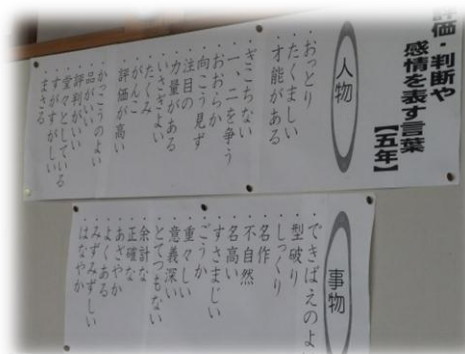 評価・判断や
感情を表す言葉
【五年】
人物
・おっとり
・たくましい
・才能がある
・ぎこちない
・一、二を争う
・おおらか
・向こう見ず
・注目の
・力量がある
・いさぎよい
・たくみ
・がんこ
・評価が高い
・かっこうのよい
・品がいい
・評判がいい
・堂々としている
・すがすがしい
・まさる
事物
・できばえのよい
・型破り
・しっくり
・名作
・不自然
・名高い
・すさまじい
・ごうか
・重々しい
・意義深い
・とてつもない
・余計な
・正確な
・あざやか
・よくある
・みずみずしい
・はなやか